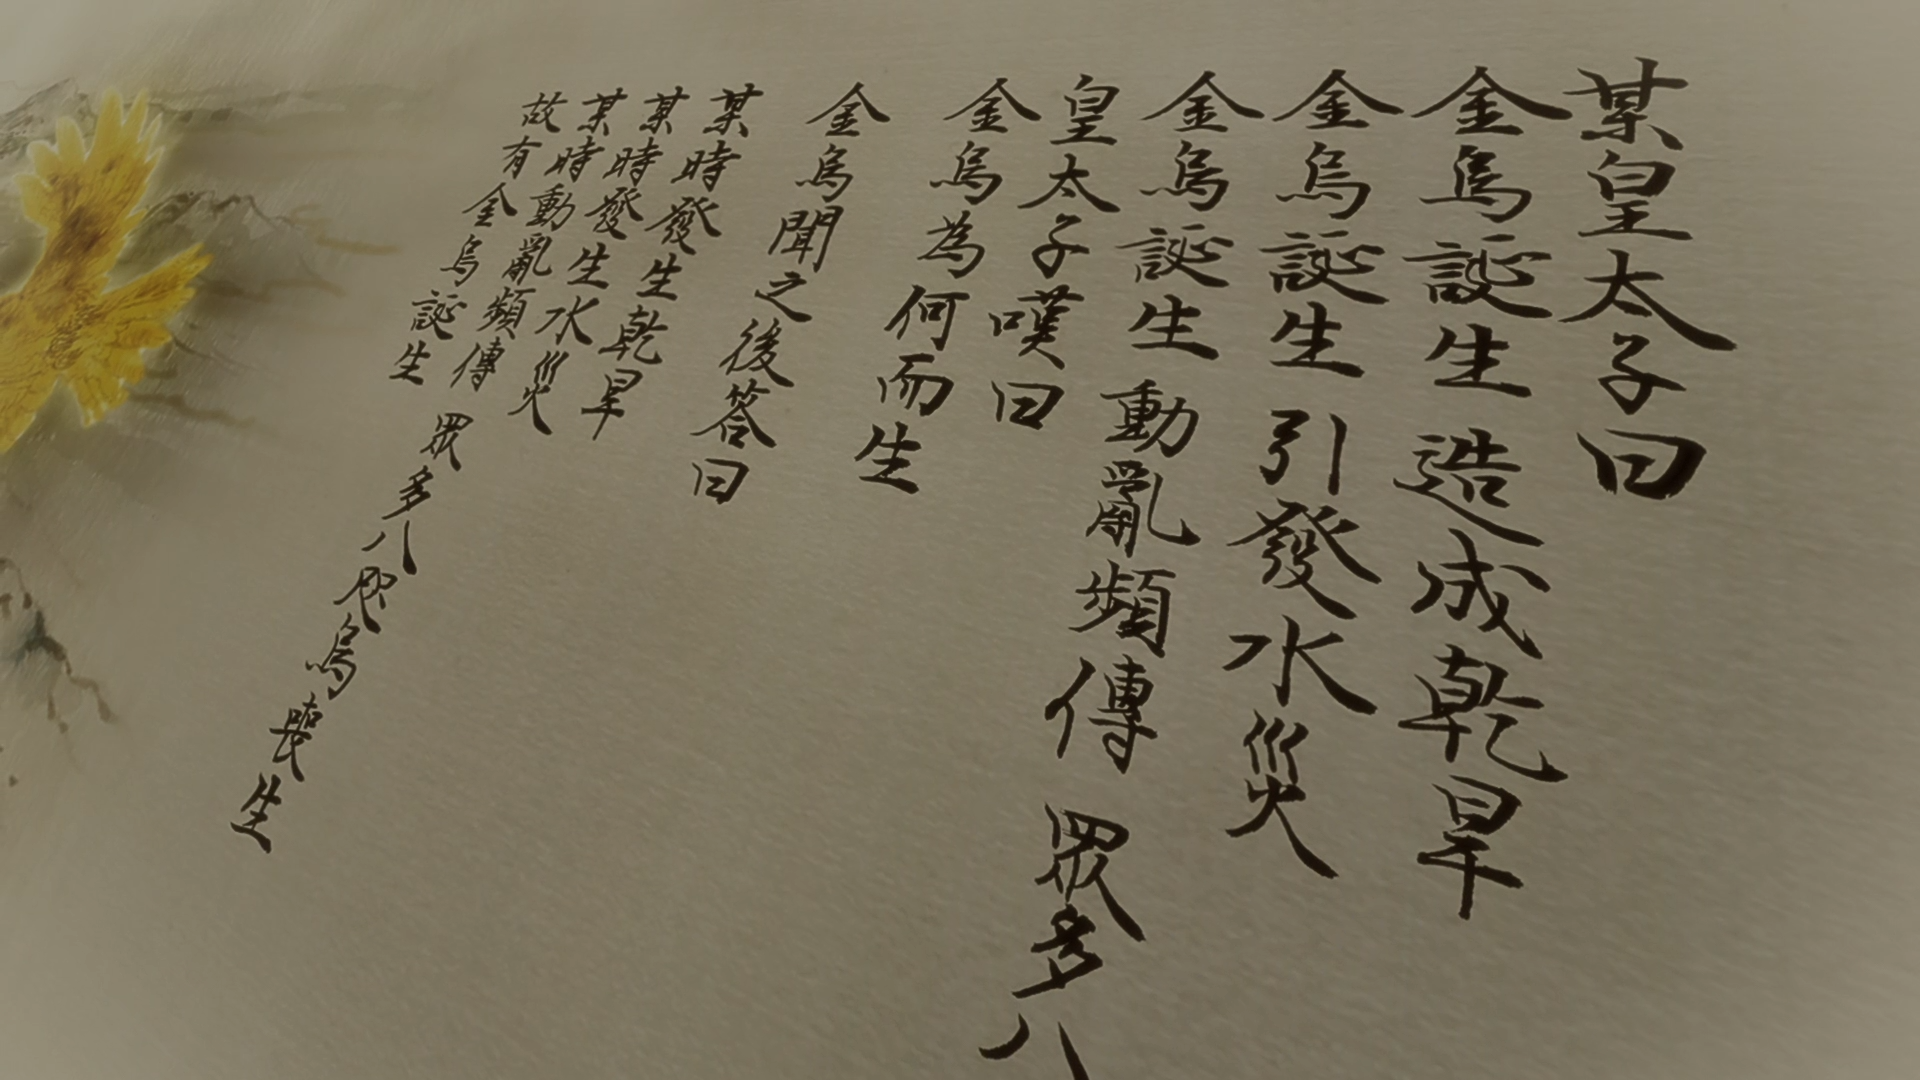 某皇太子曰
金烏誕生 造成乾旱
金烏誕生 引發水災
金烏誕生 動亂頻傳 眾多八
皇太子嘆曰
金烏為何而生
金烏聞之後答曰
某時發生乾旱
某時發生水災
某時動亂頻傳
故有金烏誕生 眾多八咫烏喪生